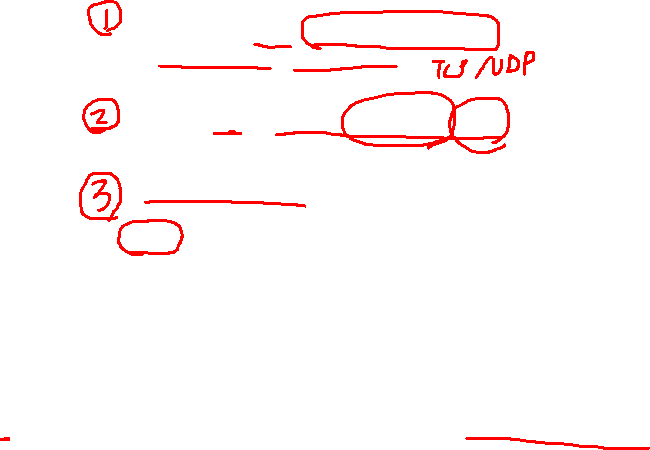 ①
TCP/UDP
②
③